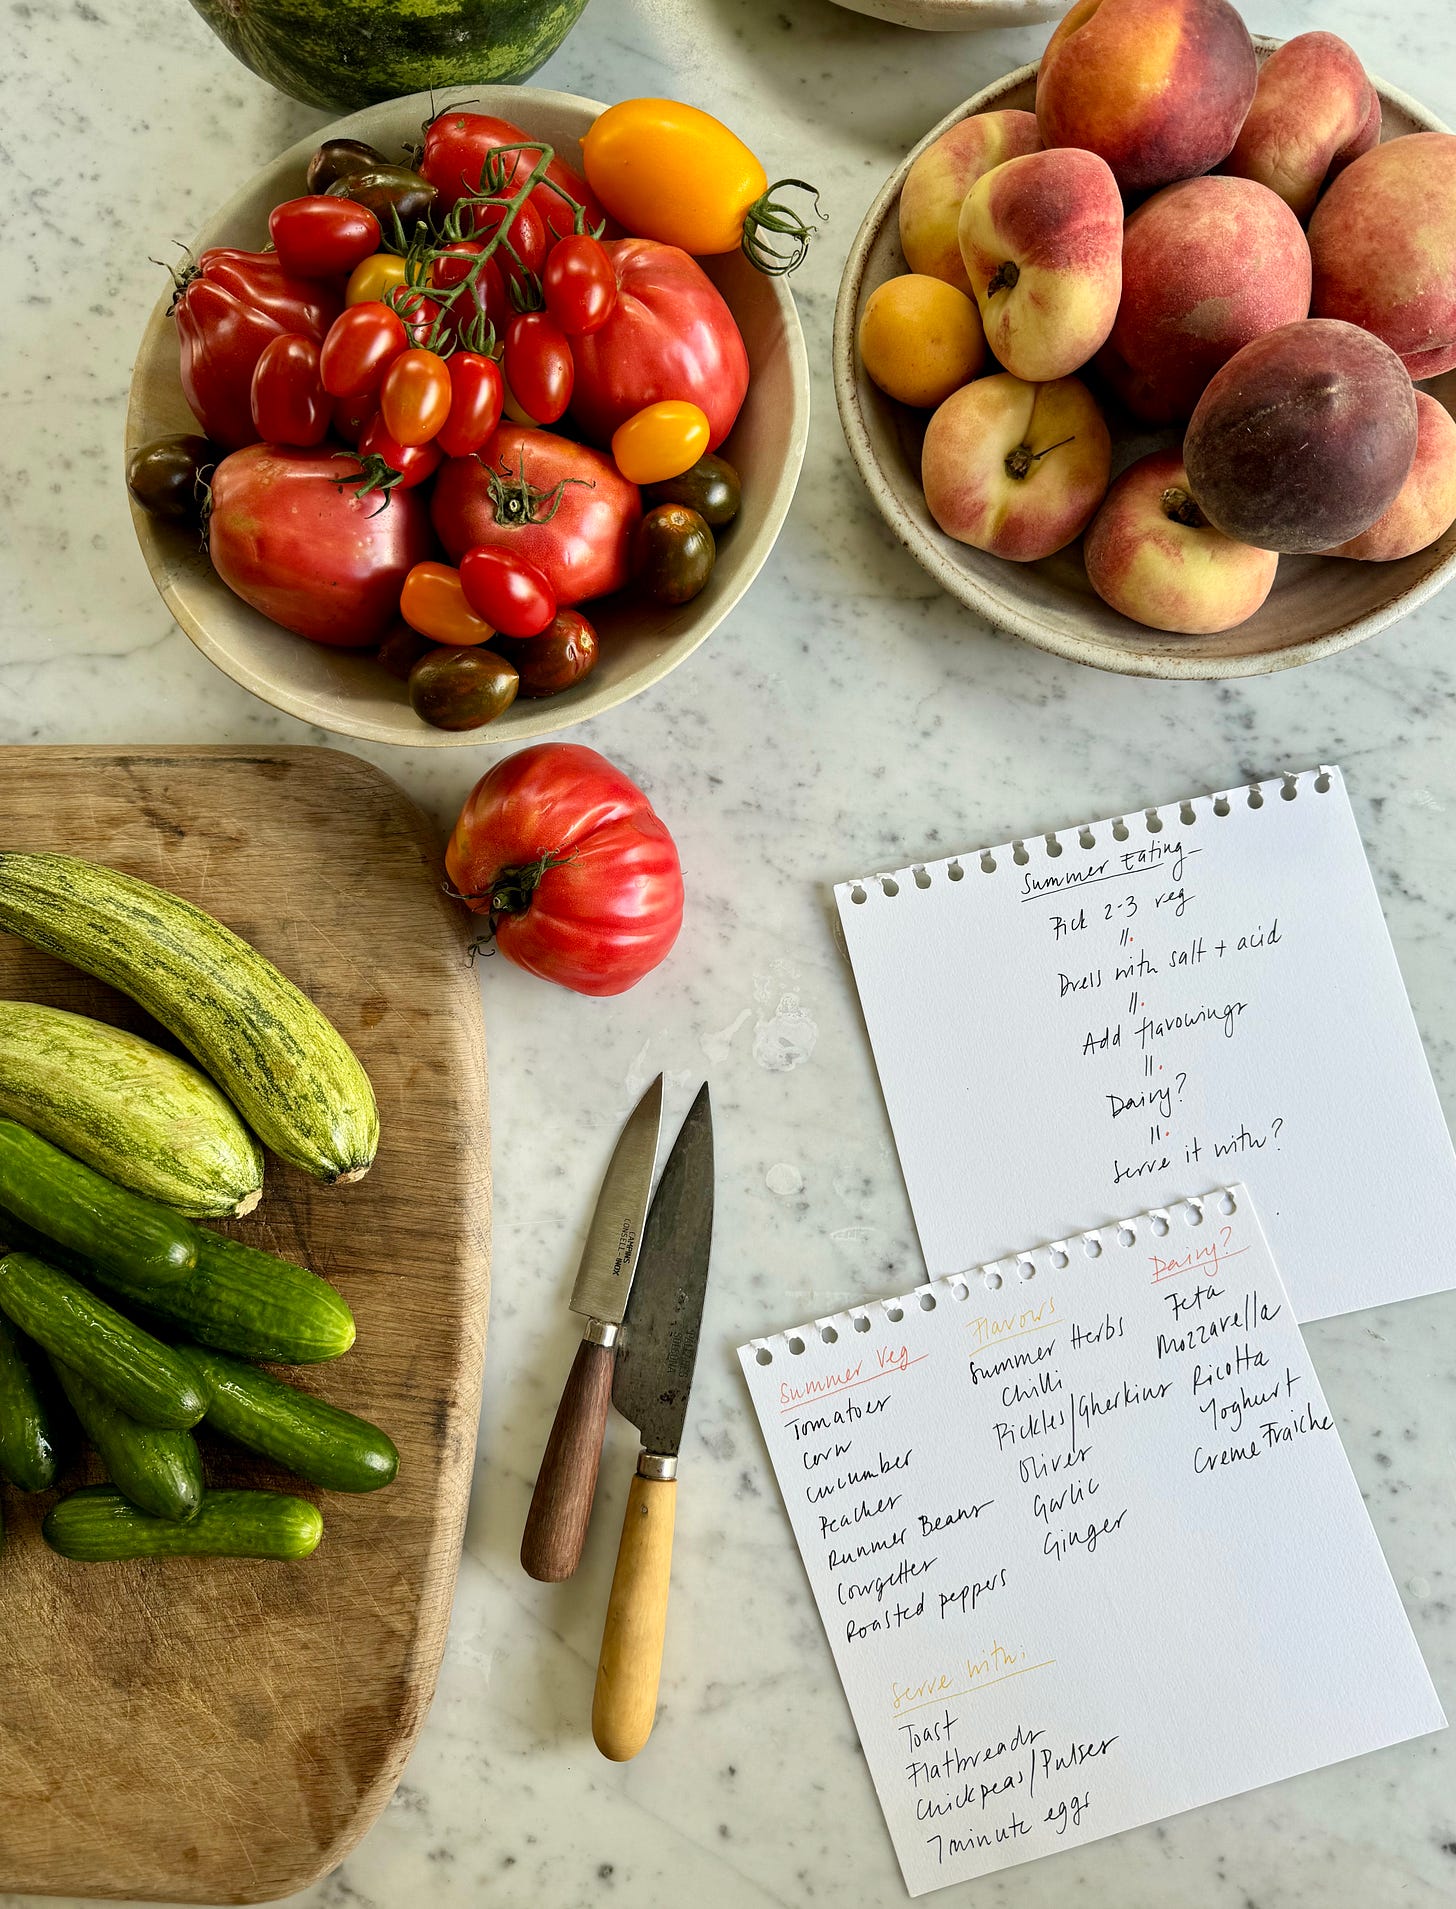 Summer Eating
Pick 2-3 veg
Dress with salt + acid
Add flavourings
Dairy?
Serve it with?
Summer Veg
Tomatoes
Corn
Cucumber
Peaches
Runner Beans
Courgettes
Roasted peppers
Flavours
Summer Herbs
Chilli
Pickles/Gherkins
Olives
Garlic
Ginger
Dairy?
Feta
Mozzarella
Ricotta
Yoghurt
Creme Fraiche
Serve with:
Toast
Flatbreads
Chickpeas/Pulses
7 minute eggs
CONSELL-INOX